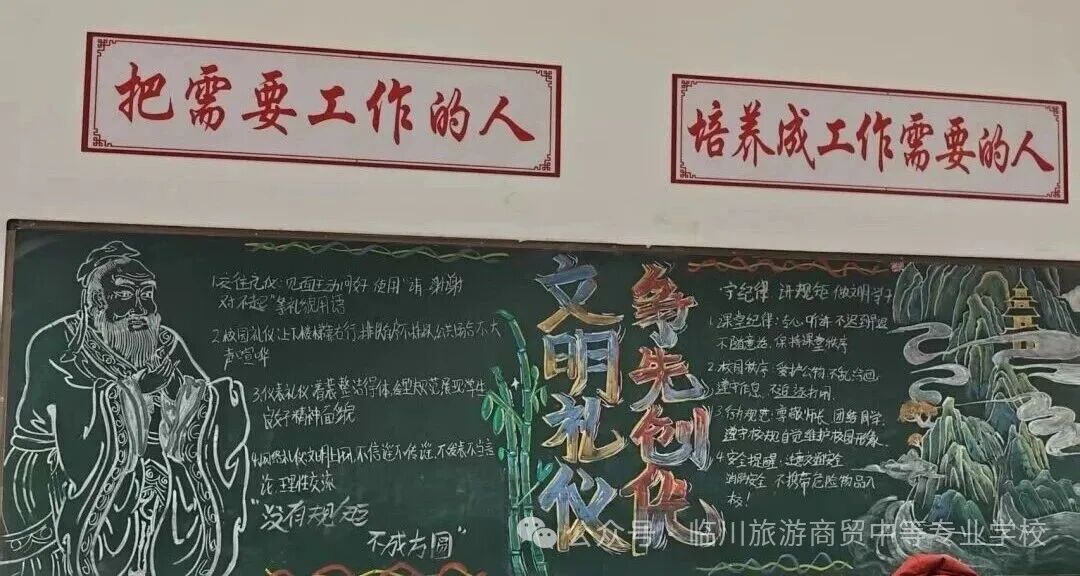 把需要工作的人
培养成工作需要的人
1.交往礼仪:见面主动问好 使用"请 谢谢
对不起"等礼貌用语
2.校园礼仪:上下楼梯靠右行,排队 不 公共场合不大
声喧哗
3.仪表礼仪:着装整洁得体 造型规范展现学生
良好精神面貌
4.网络礼仪:文明上网,不信谣不传谣,不发表不当言
论,理性交流
"没有规矩
不成方圆"
文明礼仪
争先创优
守纪律 讲规矩 做文明学子
1.课堂纪律:专心听讲 不迟到早退
不随意 保持课堂秩序
2.校园秩序:爱护公物 不乱涂画
遵守作息 不追逐打闹
3.行为规范:尊敬师长 团结同学
遵守校规 自觉维护校园形象
4.安全提醒:注意交通安全
消防安全 不携带危险物品入
校!
公众号·临川旅游商贸中等专业学校